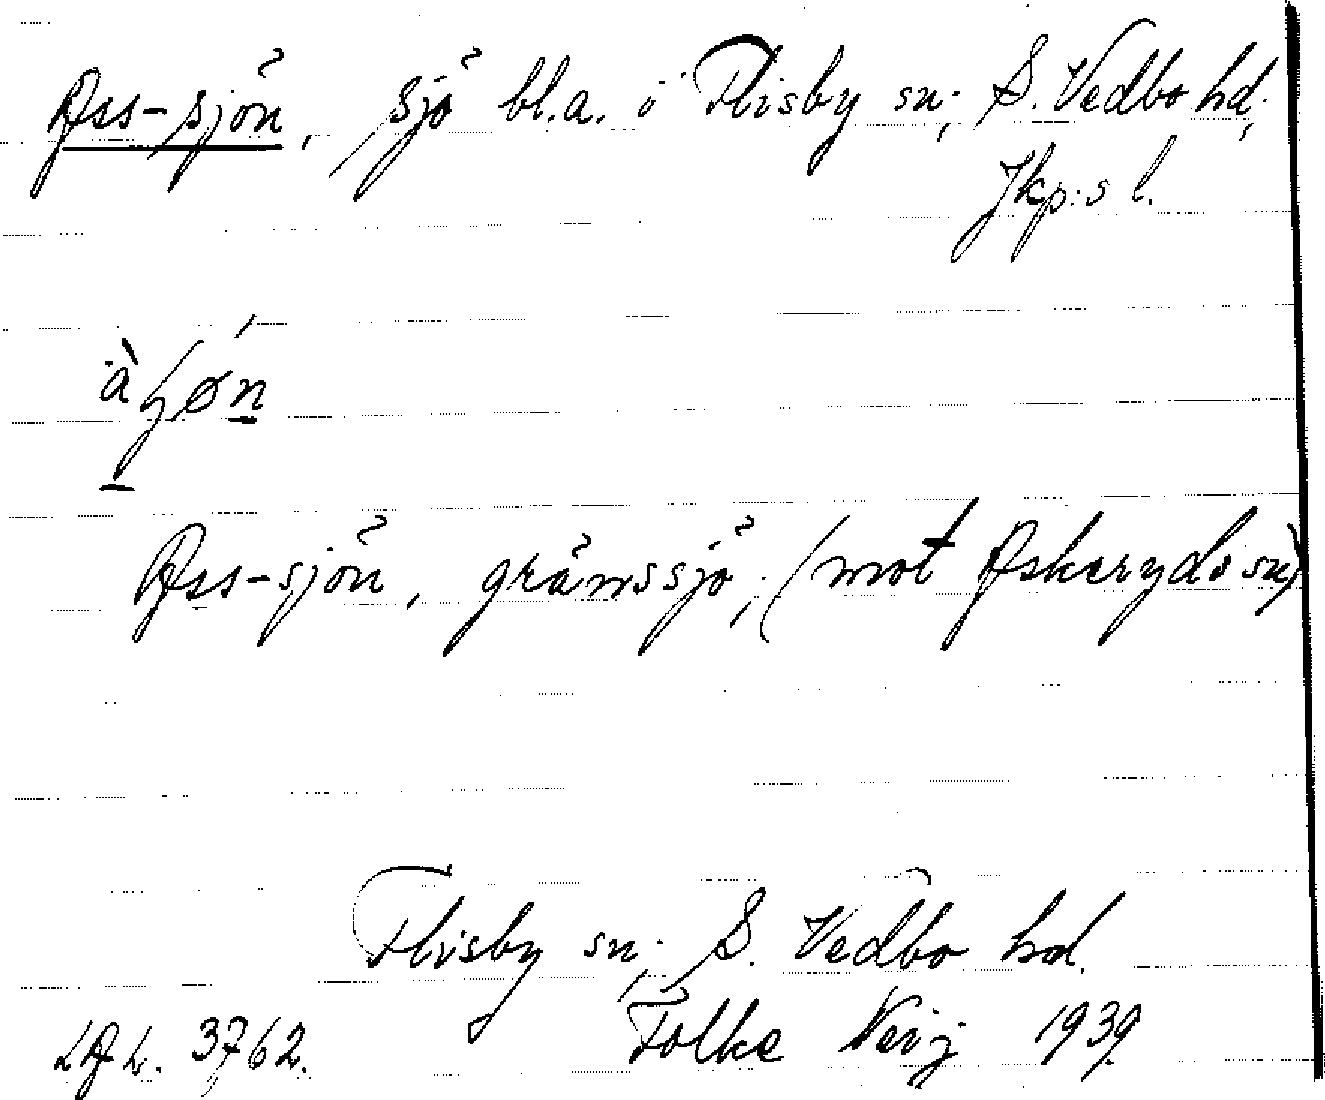 Ass-sjön, sjö bl.a. i Flisby sn; S. Vedbo hd,
Jkp:s l.
Ass-sjön, gränssjö, (mot Askeryds sn)
Flisby sn; S. Vedbo hd.
LAL. 3762. Folke Neij 1939.